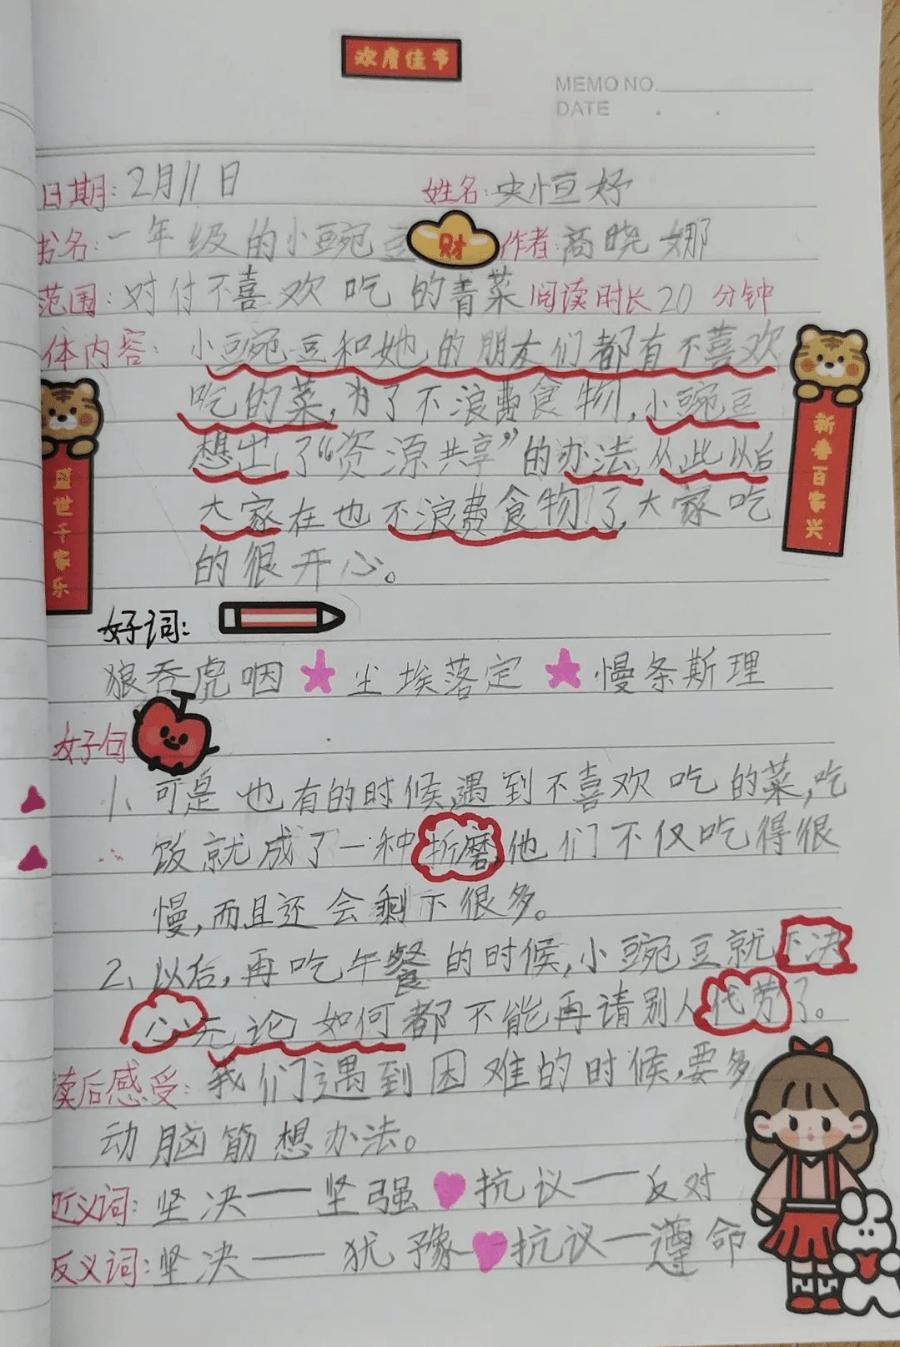 欢度佳节
MEMO NO.
DATE
日期:2月11日 姓名:史恒妤
书名:一年级的小豌豆 财 作者:商晓娜
范围:对付不喜欢吃的青菜 阅读时长20分钟
体内容:小豌豆和她的朋友们都有不喜欢
吃的菜,为了不浪费食物,小豌豆
想出了“资源共享”的办法,从此以后
大家在也不浪费食物了,大家吃
的很开心。
盛世千家乐
新春百家兴
好词:
狼吞虎咽 尘埃落定 慢条斯理
好句
1、可是也有的时候,遇到不喜欢吃的菜,吃
饭就成了一种折磨,他们不仅吃得很
慢,而且还会剩下很多。
2、以后,再吃午餐的时候,小豌豆就下决
心无论如何都不能再请别人代劳了。
读后感受:我们遇到困难的时候,要多
动脑筋想办法。
近义词:坚决——坚强 抗议——反对
反义词:坚决——犹豫 抗议—遵命